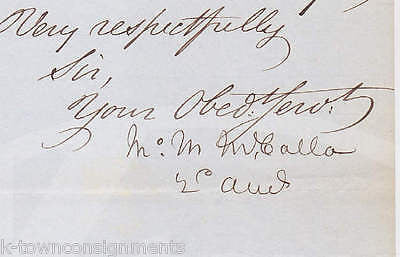 Very respectfully
Sir,
Your Obed: Serv:t
Jno. M McCalla
2d Aud
k-townconsignments